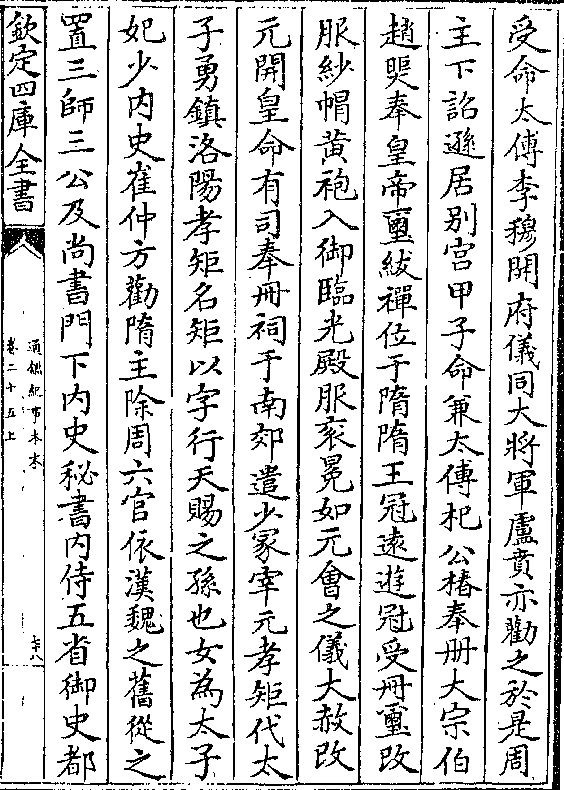 受命太傅李穆開府儀同大將軍盧賁亦勸之於是周
主下詔遜居别宮甲子命兼太傅杞公椿奉册大宗伯
趙煚奉皇帝璽紱禪位于隋隋王冠逺逰冠受册璽改
服紗帽黄袍入御臨光殿服衮冕如元㑹之儀大赦改
元開皇命有司奉冊祠于南郊遣少冢宰元孝矩代太
子勇鎮洛陽孝矩名矩以字行天賜之孫也女為太子
妃少内史崔仲方勸隋主除周六官依漢魏之舊從之
置三師三公及尚書門下内史秘書内侍五省御史都
欽定四庫全書
通鑑紀事本末
卷二十五上
七十八